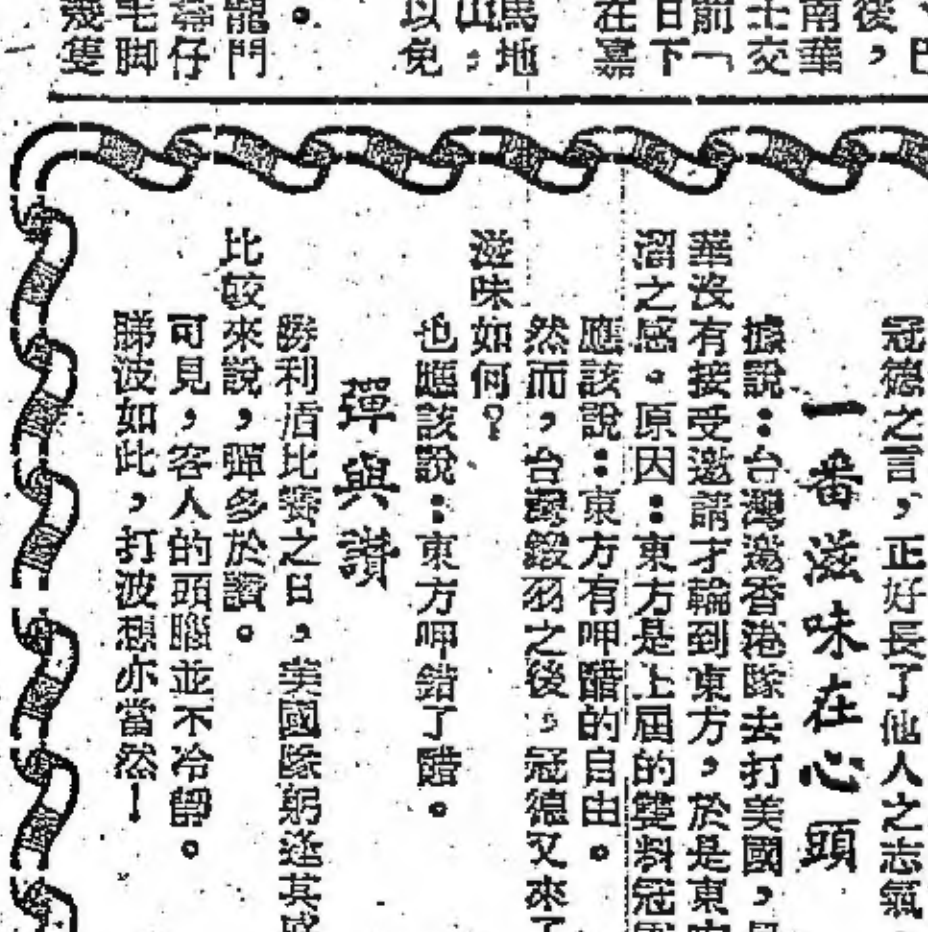 後，
南華
士交
前「
日下
在嘉
馬地
山；
以免
。
龍門
幕仔
毛脚
幾隻
冠德之言，正好長了他人之志氣
一番滋味在心頭
據說：台灣邀香港隊去打美國，
華沒有接受邀請才輪到東方，於是東
溜之感。原因：東方是上屆的雙料冠
應該說：東方有呷醋的自由。
然而，台灣鎩羽之後，冠德又來了
滋味如何？
也應該說：東方呷錯了醋。
彈與讚
勝利盾比賽之日，美國隊躬逢其盛
比較來說，彈多於讚。
可見，客人的頭腦並不冷靜。
睇波如此，打波想亦當然！